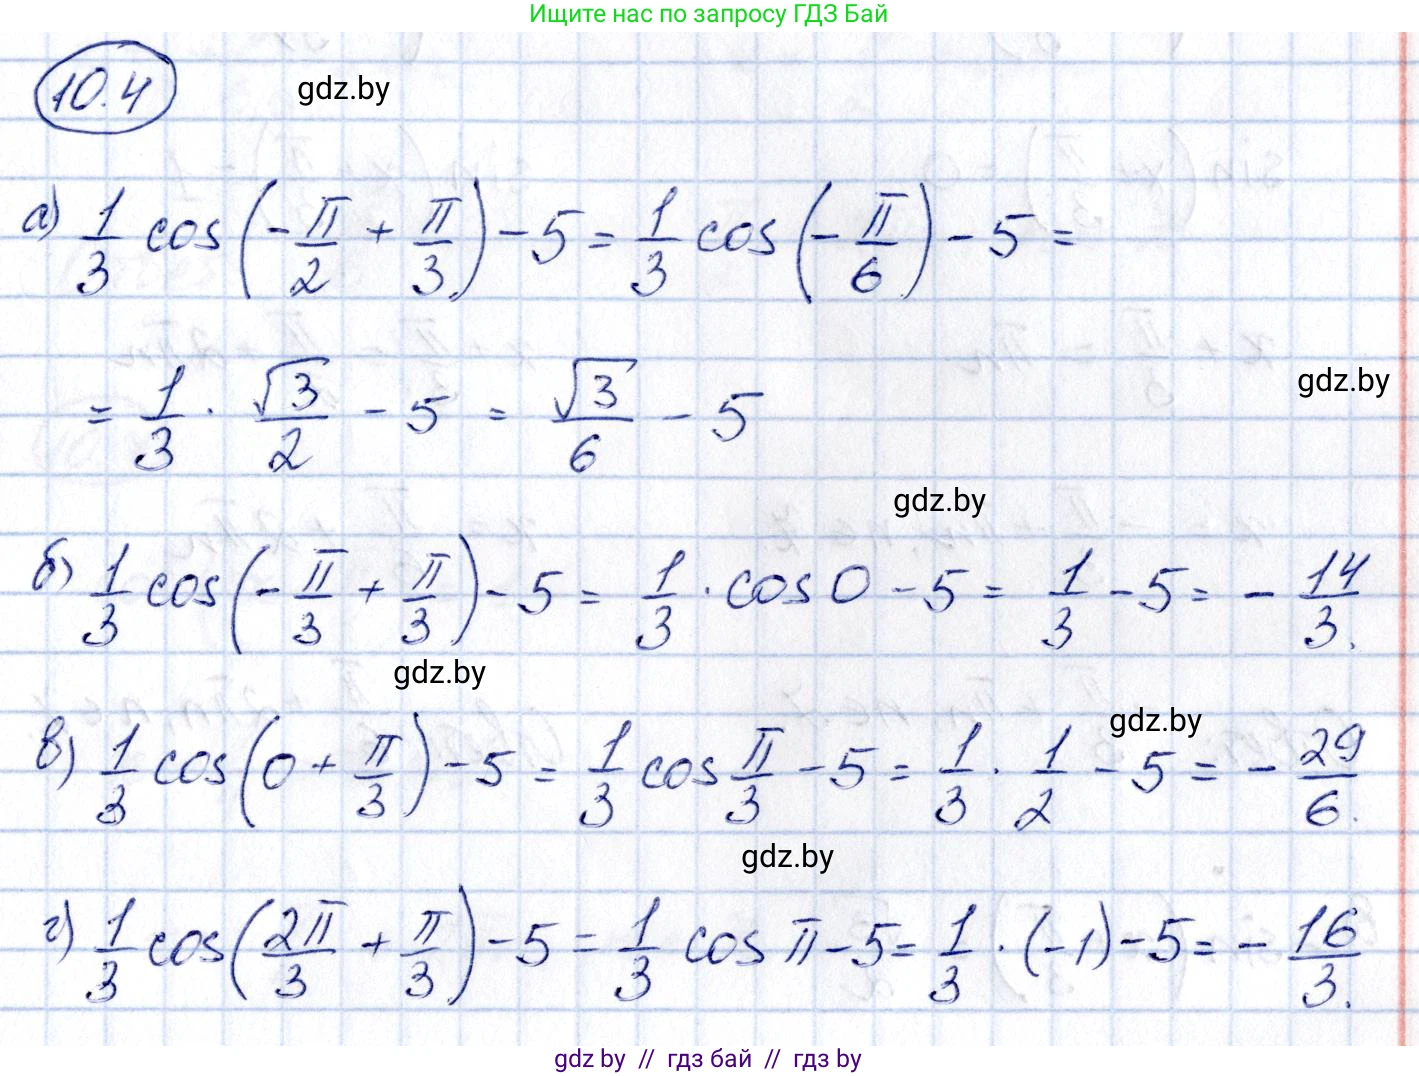 Ищите нас по запросу ГДЗ Бай
10.4
gdz.by
а) 1/3 cos(-π/2 + π/3) - 5 = 1/3 cos(-π/6) - 5 =
= 1/3 · √3/2 - 5 = √3/6 - 5
gdz.by
gdz.by
б) 1/3 cos(-π/3 + π/3) - 5 = 1/3 · cos 0 - 5 = 1/3 - 5 = - 14/3.
gdz.by
gdz.by
в) 1/3 cos(0 + π/3) - 5 = 1/3 cos π/3 - 5 = 1/3 · 1/2 - 5 = - 29/6.
gdz.by
г) 1/3 cos(2π/3 + π/3) - 5 = 1/3 cos π - 5 = 1/3 · (-1) - 5 = - 16/3.
gdz by // гдз бай // гдз by